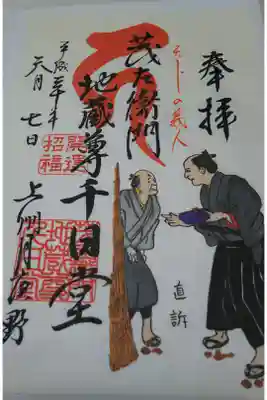 奉拝
の義人
茂左衛門
地蔵尊千日堂
直訴
開運
招福
平成三十年
六月
七日
上州月夜野